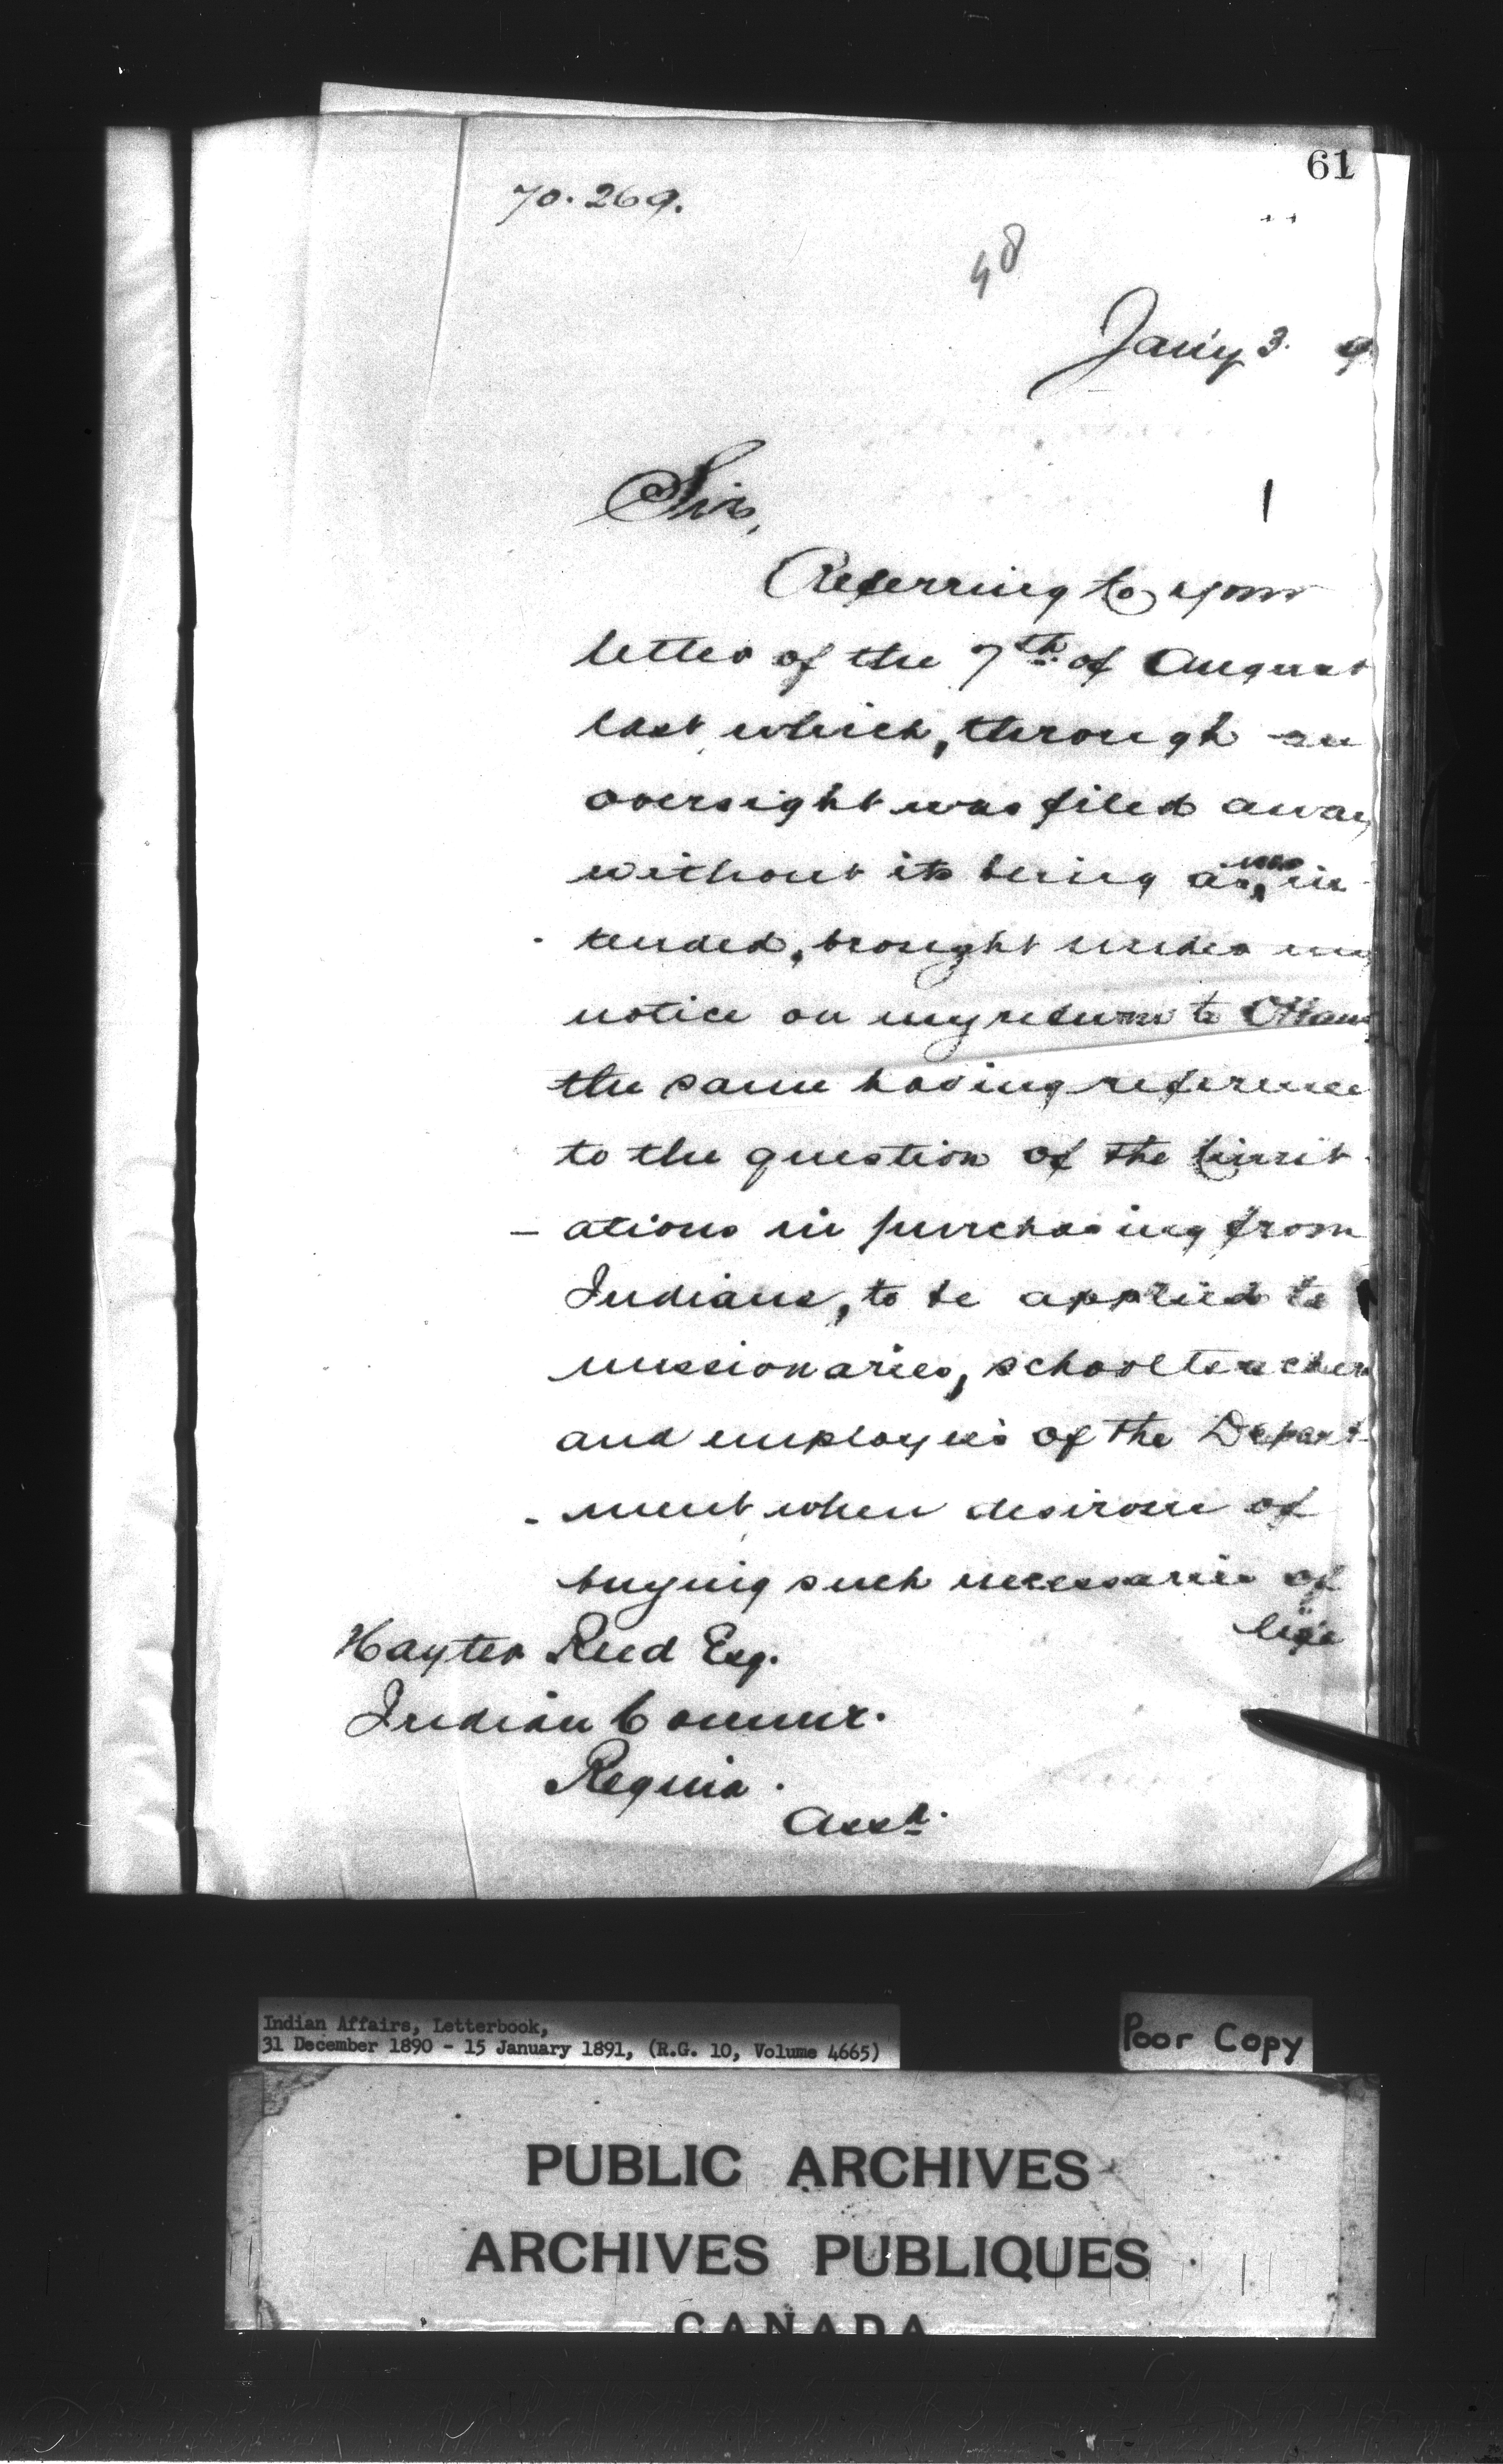 61
70.269.
48
Jan'y 3. 9
Sir,
Referring to your
letter of the 7th of August
last which, through an
oversight was filed away
without its being as, was in
tended, brought under my
notice on my return to Ottawa
the same having reference
to the question of the limit
- ations in purchasing from
Indians, to be applied to
missionaries, school teachers
and employees of the Depart-
- ment when desirous of
buying such necessaries of
life
Hayter Reed Esq.
Indian Commr.
Regina.
Assa.
Indian Affairs, Letterbook,
31 December 1890 - 15 January 1891, (R.G. 10, Volume 4665)
Poor Copy
PUBLIC ARCHIVES
ARCHIVES PUBLIQUES
CANADA